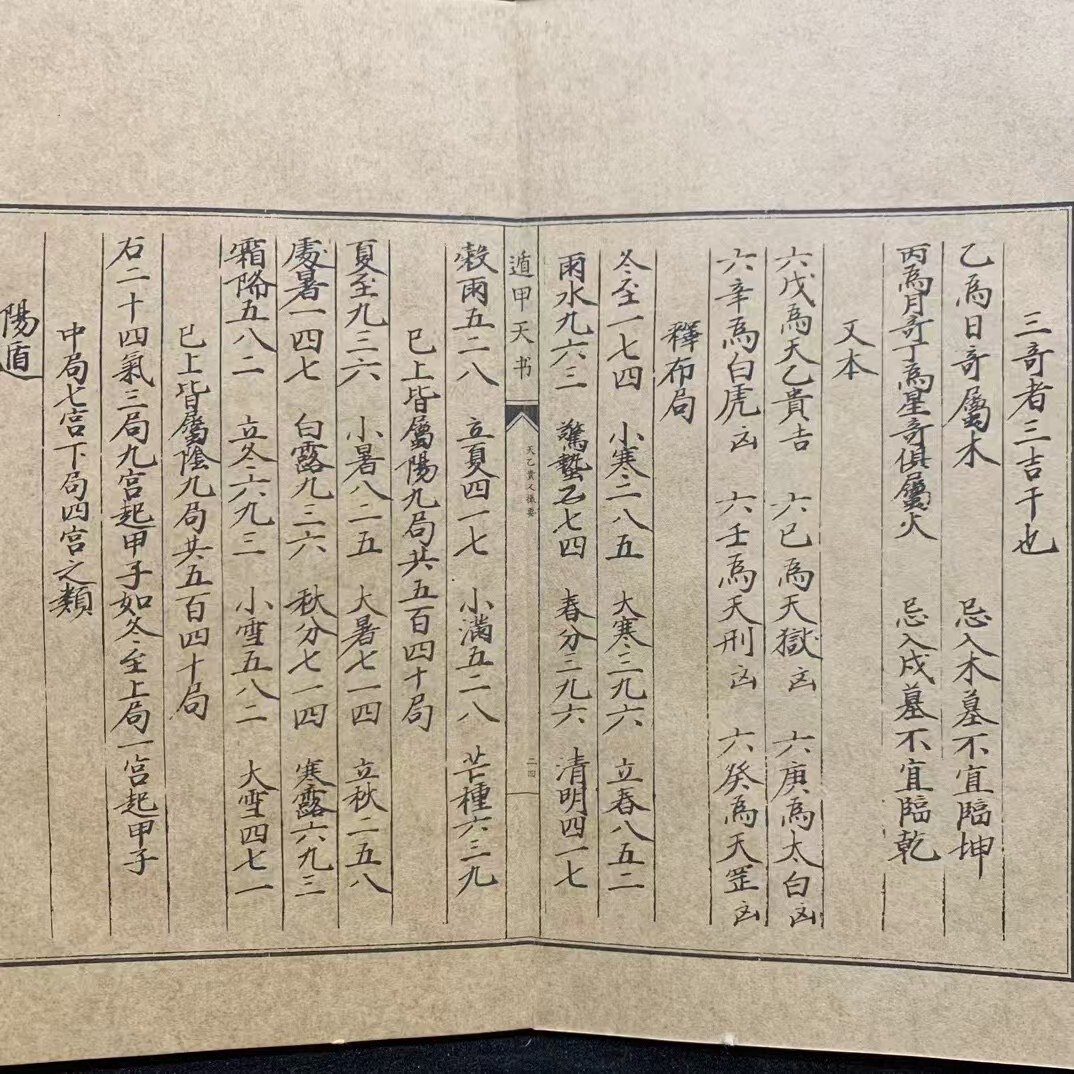 三奇者三吉干也
乙爲日奇屬木 忌入木墓不宜臨坤
丙爲月奇丁爲星奇俱屬火 忌入戌墓不宜臨乾
又本
六戊爲天乙貴吉 六巳爲天獄凶 六庚爲太白凶
六辛爲白虎凶 六壬爲天刑凶 六癸爲天罡凶
釋布局
冬至一七四 小寒二八五 大寒三九六 立春八五二
雨水九六三 驚蟄乙七四 春分三九六 清明四一七
遁甲天书
天乙貴人徵要
二四
穀雨五二八 立夏四一七 小滿五二八 芒種六三九
巳上皆屬陽九局共五百四十局
夏至九三六 小暑八二五 大暑七一四 立秋二五八
處暑一四七 白露九三六 秋分七一四 寒露六九三
霜降五八二 立冬六九三 小雪五八二 大雪四七一
巳上皆屬陰九局共五百四十局
右二十四氣三局九宮起甲子如冬至上局一宮起甲子
中局七宮下局四宮之類
陽遁